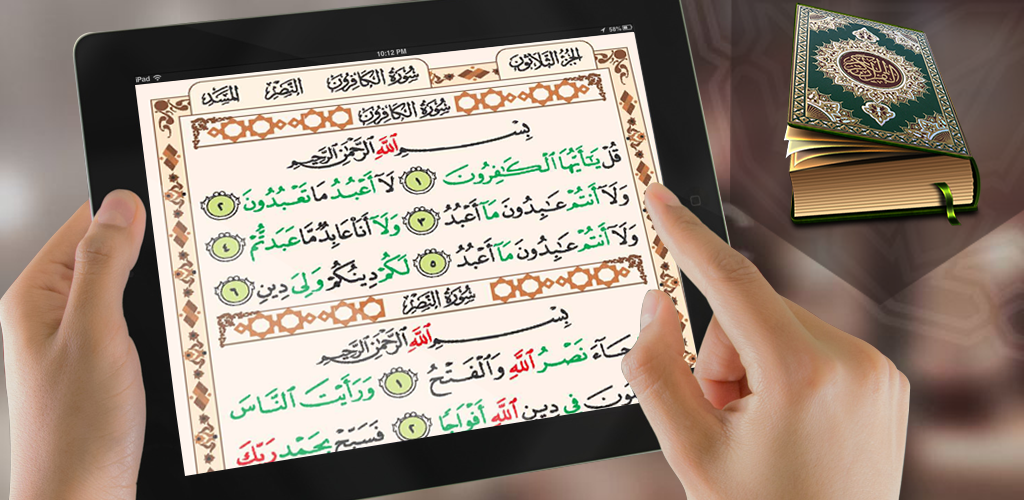 iPad 10:12 PM 58%
الجزء الثلاثون سورة الكافرون النصر المسد
سورة الكافرون
بِسْمِ ٱللَّهِ ٱلرَّحْمَٰنِ ٱلرَّحِيمِ
قُلْ يَٰٓأَيُّهَا ٱلْكَٰفِرُونَ ١ لَآ أَعْبُدُ مَا تَعْبُدُونَ ٢
وَلَآ أَنتُمْ عَٰبِدُونَ مَآ أَعْبُدُ ٣ وَلَآ أَنَا۠ عَابِدٌ مَّا عَبَدتُّمْ ٤
وَلَآ أَنتُمْ عَٰبِدُونَ مَآ أَعْبُدُ ٥ لَكُمْ دِينُكُمْ وَلِىَ دِينِ ٦
سورة النصر
بِسْمِ ٱللَّهِ ٱلرَّحْمَٰنِ ٱلرَّحِيمِ
جَآءَ نَصْرُ ٱللَّهِ وَٱلْفَتْحُ ١ وَرَأَيْتَ ٱلنَّاسَ
فِى دِينِ ٱللَّهِ أَفْوَاجًا ٢ فَسَبِّحْ بِحَمْدِ رَبِّكَ